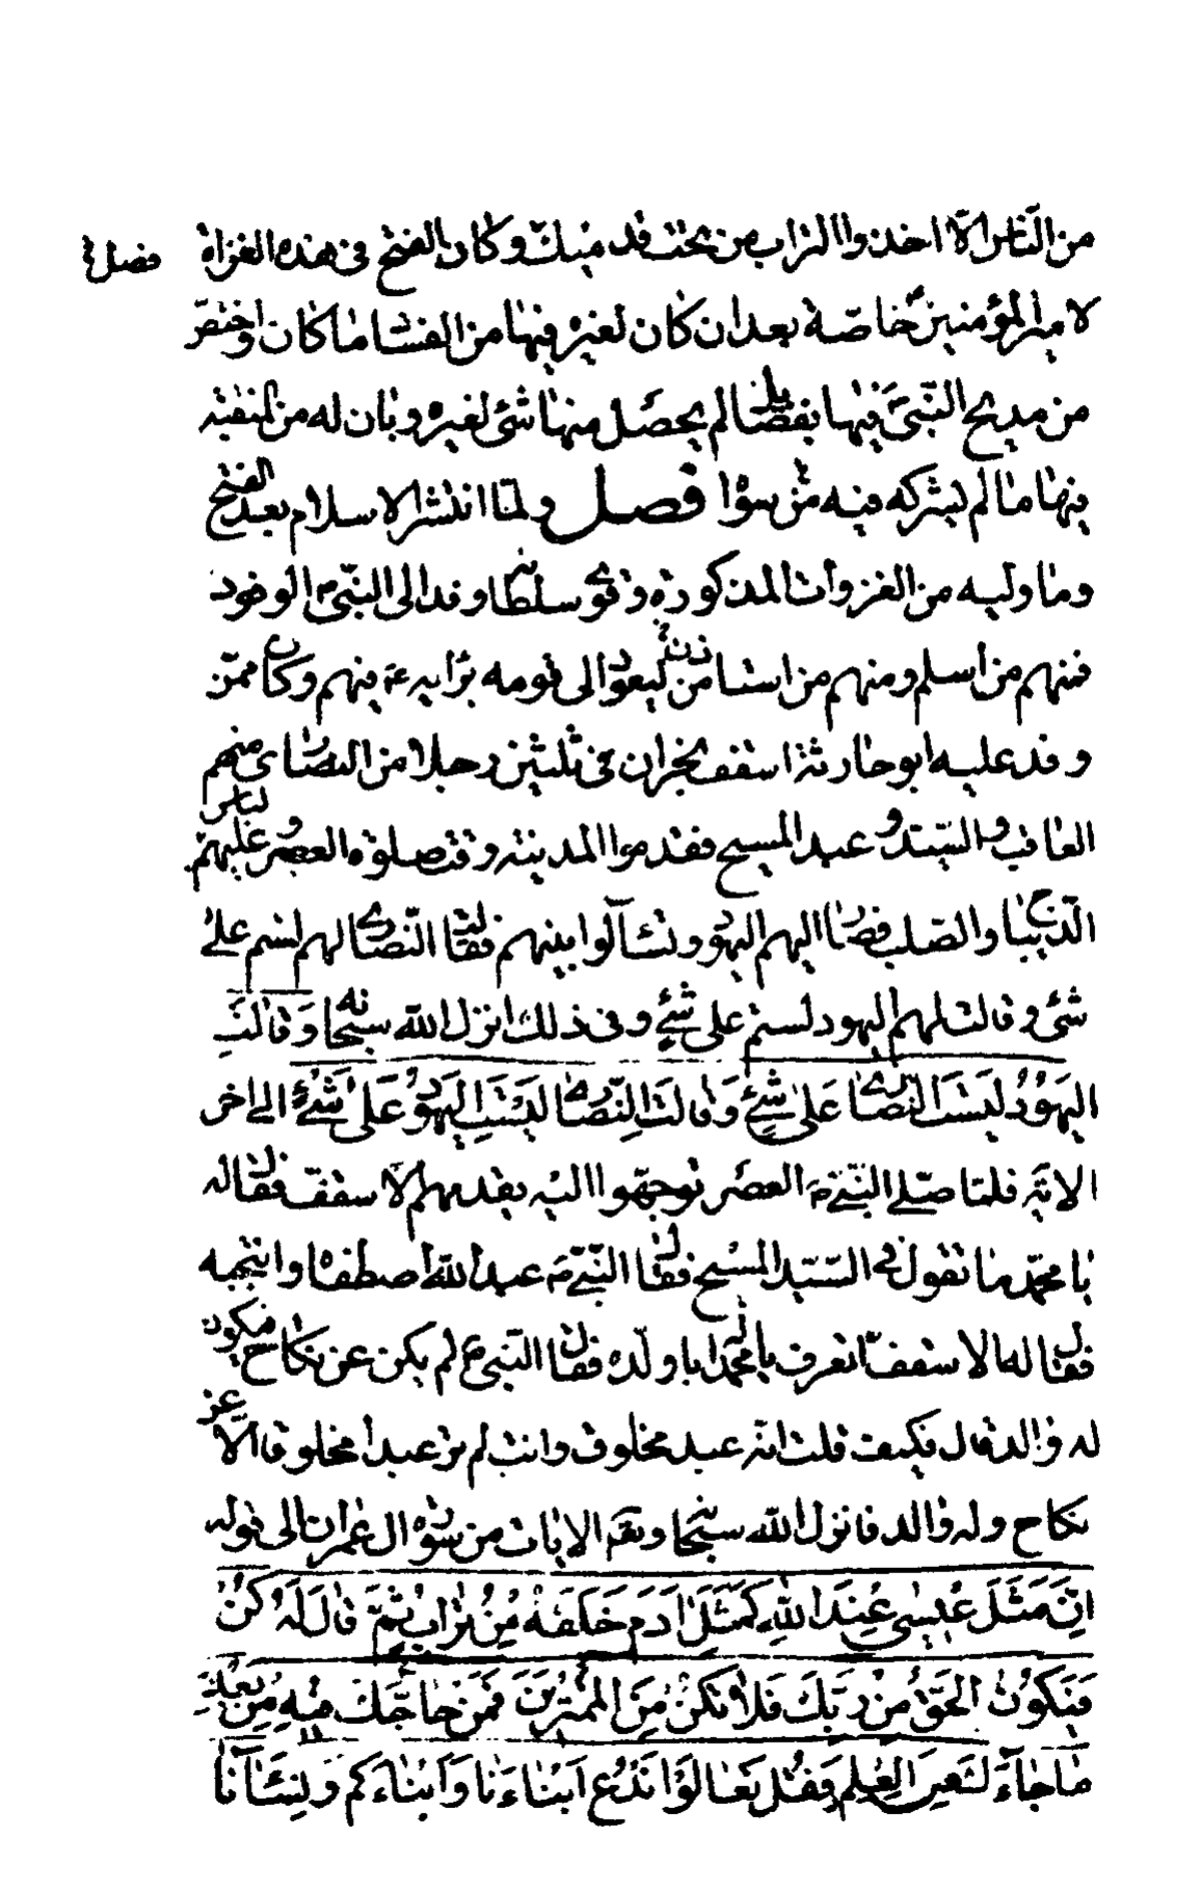 من الناس الا اخذوا التراب من تحت قدميك وكان الفتح فى هذه الغزاة
فصل
لامير المؤمنين ع خاصة بعد ان كان لغيره فيها من الفساد ما كان واختص
من مديح النبى ص فيها بفضائل لم يحصل منها شئ لغيره وبان له من المنقبة
فيها ما لم يشركه فيه من سواه فصل ولما انتشر الاسلام بعد الفتح
وما وليه من الغزوات المذكورة وقوى سلطانه وفد الى النبى ص الوفود
فمنهم من اسلم ومنهم من استأمن ليعود الى قومه برأيه ع فيهم وكان ممن
وفد عليه ابو حارثة اسقف نجران فى ثلثين رجلا من النصارى منهم
العاقب والسيد وعبد المسيح فقدموا المدينة وقت صلوة العصر وعليهم لباس
الديباج والصلب فصار اليهم اليهود وتسآلوا بينهم فقالت النصارى لهم لستم على
شئ وقالت لهم اليهود لستم على شئ وفى ذلك انزل الله سبحانه وَقالَتِ
الْيَهُوْدُ لَيْسَتِ النَّصارىٰ عَلىٰ شَئٍ وَقالَتِ النَّصارىٰ لَيْسَتِ الْيَهُودُ عَلىٰ شَئٍ الى اخر
الاية فلما صلى النبى ص العصر توجهوا اليه يقدمهم الاسقف فقال له
يا محمد ما تقول فى السيد المسيح فقال النبى ص عبد الله اصطفاه وانتجبه
فقال له الاسقف اتعرف يا محمد له ابا ولده فقال النبى ع لم يكن عن نكاح فيكون
له والد قال فكيف قلت انه عبد مخلوق وانت لم تر عبدا مخلوقا الا عن
نكاح وله والد فانزل الله سبحانه وتعم الايات من سورة ال عمران الى قوله
اِنَّ مَثَلَ عِيْسٰى عِنْدَ اللهِ كَمَثَلِ ادَمَ خَلَقَهُ مِنْ تُرابٍ ثُمَّ قالَ لَهُ كُنْ
فَيَكُوْنُ الْحَقُّ مِنْ رَبِّكَ فَلا تَكُنْ مِنَ الْمُمْتَرِيْنَ فَمَنْ حاجَّكَ فِيْهِ مِنْ بَعْدِ
ما جاءَكَ مِنَ الْعِلْمِ فَقُلْ تَعالَوْا نَدْعُ اَبْناءَنا وَاَبْناءَكُمْ وَنِساءَنا